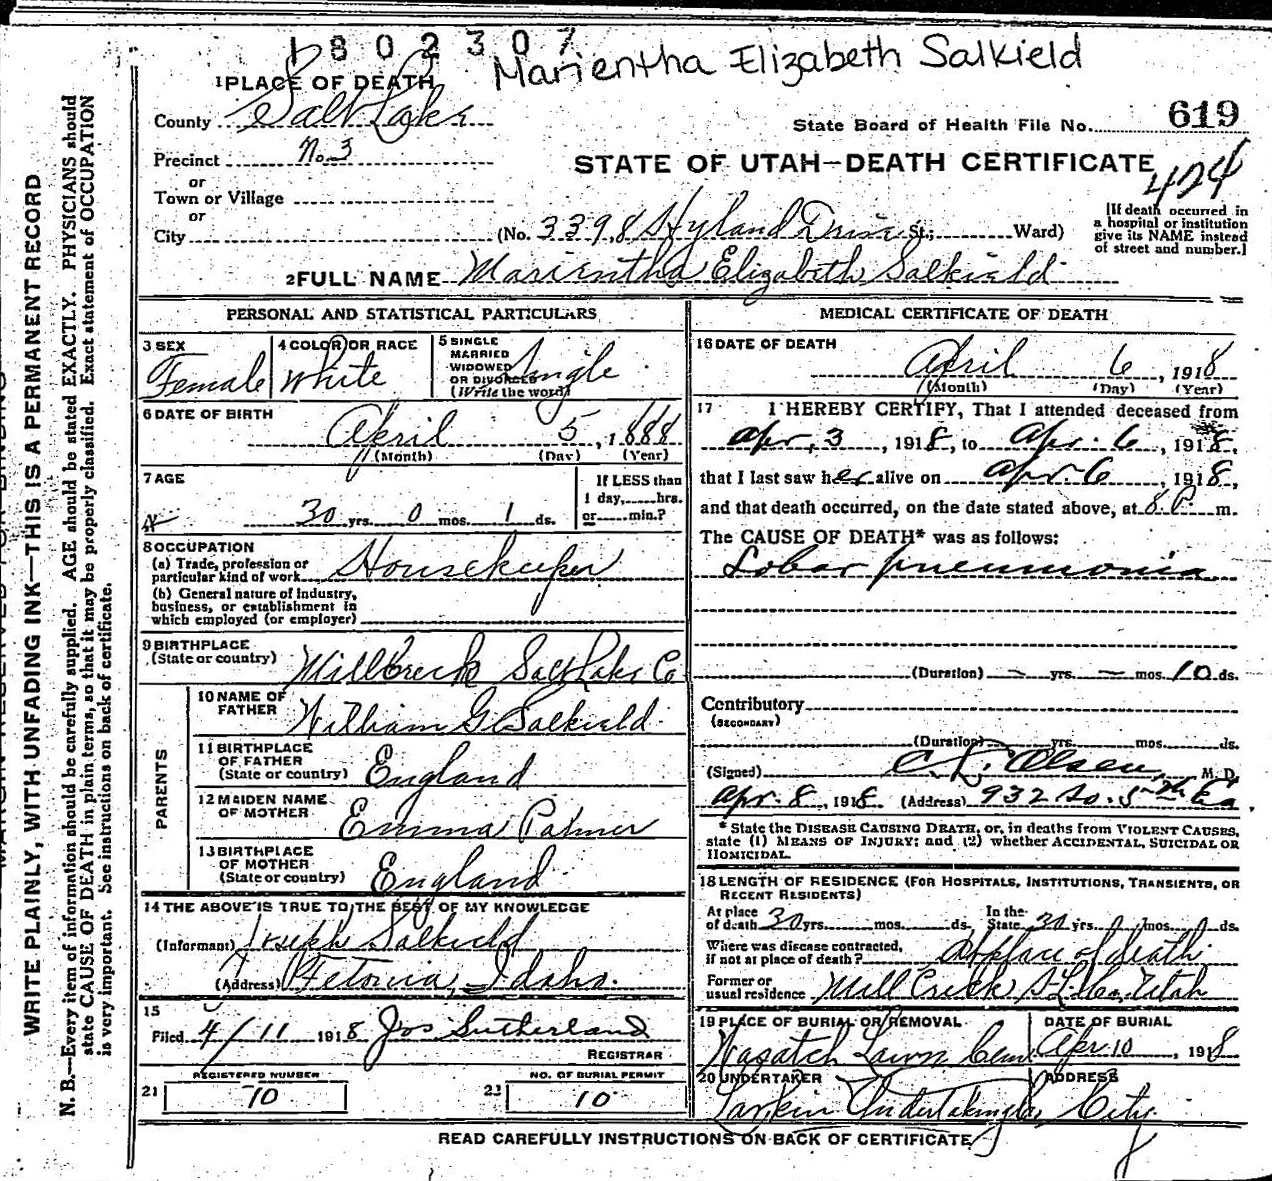 1802307
Marientha Elizabeth Salkield
1 PLACE OF DEATH
County Salt Lake
State Board of Health File No. 619
Precinct No. 3
STATE OF UTAH—DEATH CERTIFICATE
424
or
Town or Village
or
City (No. 3398 Hyland Drive St.; Ward)
[If death occurred in
a hospital or institution
give its NAME instead
of street and number.]
2 FULL NAME Marientha Elizabeth Salkield
PERSONAL AND STATISTICAL PARTICULARS
3 SEX
Female
4 COLOR OR RACE
White
5 SINGLE
MARRIED
WIDOWED
OR DIVORCED
(Write the word)
Single
6 DATE OF BIRTH
April 5, 1888
(Month) (Day) (Year)
7 AGE
30 yrs. 0 mos. 1 ds.
If LESS than
1 day, hrs.
or min.?
8 OCCUPATION
(a) Trade, profession or
particular kind of work Housekeeper
(b) General nature of Industry,
business, or establishment in
which employed (or employer)
9 BIRTHPLACE
(State or country) Millcreek Salt Lake Co
PARENTS
10 NAME OF
FATHER William G. Salkield
11 BIRTHPLACE
OF FATHER
(State or country) England
12 MAIDEN NAME
OF MOTHER Emma Palmer
13 BIRTHPLACE
OF MOTHER
(State or country) England
14 THE ABOVE IS TRUE TO THE BEST OF MY KNOWLEDGE
(Informant) Joseph Salkield
(Address) Tetonia, Idaho.
15
Filed 4/11 1918 Jos Sutherland
REGISTRAR
REGISTERED NUMBER
21 70
NO. OF BURIAL PERMIT
22 10
MEDICAL CERTIFICATE OF DEATH
16 DATE OF DEATH
April 6, 1918
(Month) (Day) (Year)
17 I HEREBY CERTIFY, That I attended deceased from
Apr. 3, 1918, to Apr. 6, 1918,
that I last saw her alive on Apr. 6, 1918,
and that death occurred, on the date stated above, at 8 P. m.
The CAUSE OF DEATH* was as follows:
Lobar pneumonia
(Duration) — yrs. — mos. 10 ds.
Contributory
(SECONDARY)
(Duration) yrs. mos. ds.
(Signed) C. L. Olsen, M. D.
Apr. 8, 1918 (Address) 932 So. 5th Ea.
* State the DISEASE CAUSING DEATH, or, in deaths from VIOLENT CAUSES,
state (1) MEANS OF INJURY; and (2) whether ACCIDENTAL, SUICIDAL OR
HOMICIDAL.
18 LENGTH OF RESIDENCE (FOR HOSPITALS, INSTITUTIONS, TRANSIENTS, OR
RECENT RESIDENTS)
At place
of death 30 yrs. mos. ds. In the
State 30 yrs. 0 mos. 0 ds.
Where was disease contracted,
if not at place of death? At place of death
Former or
usual residence Mill Creek S. L. Co. Utah
19 PLACE OF BURIAL OR REMOVAL
Wasatch Lawn Cem
DATE OF BURIAL
Apr 10, 1918
20 UNDERTAKER
Larkin Undertaking Co
ADDRESS
City
READ CAREFULLY INSTRUCTIONS ON BACK OF CERTIFICATE
WRITE PLAINLY, WITH UNFADING INK—THIS IS A PERMANENT RECORD
N. B.—Every item of information should be carefully supplied. AGE should be stated EXACTLY. PHYSICIANS should
state CAUSE OF DEATH in plain terms, so that it may be properly classified. Exact statement of OCCUPATION
is very important. See instructions on back of certificate.